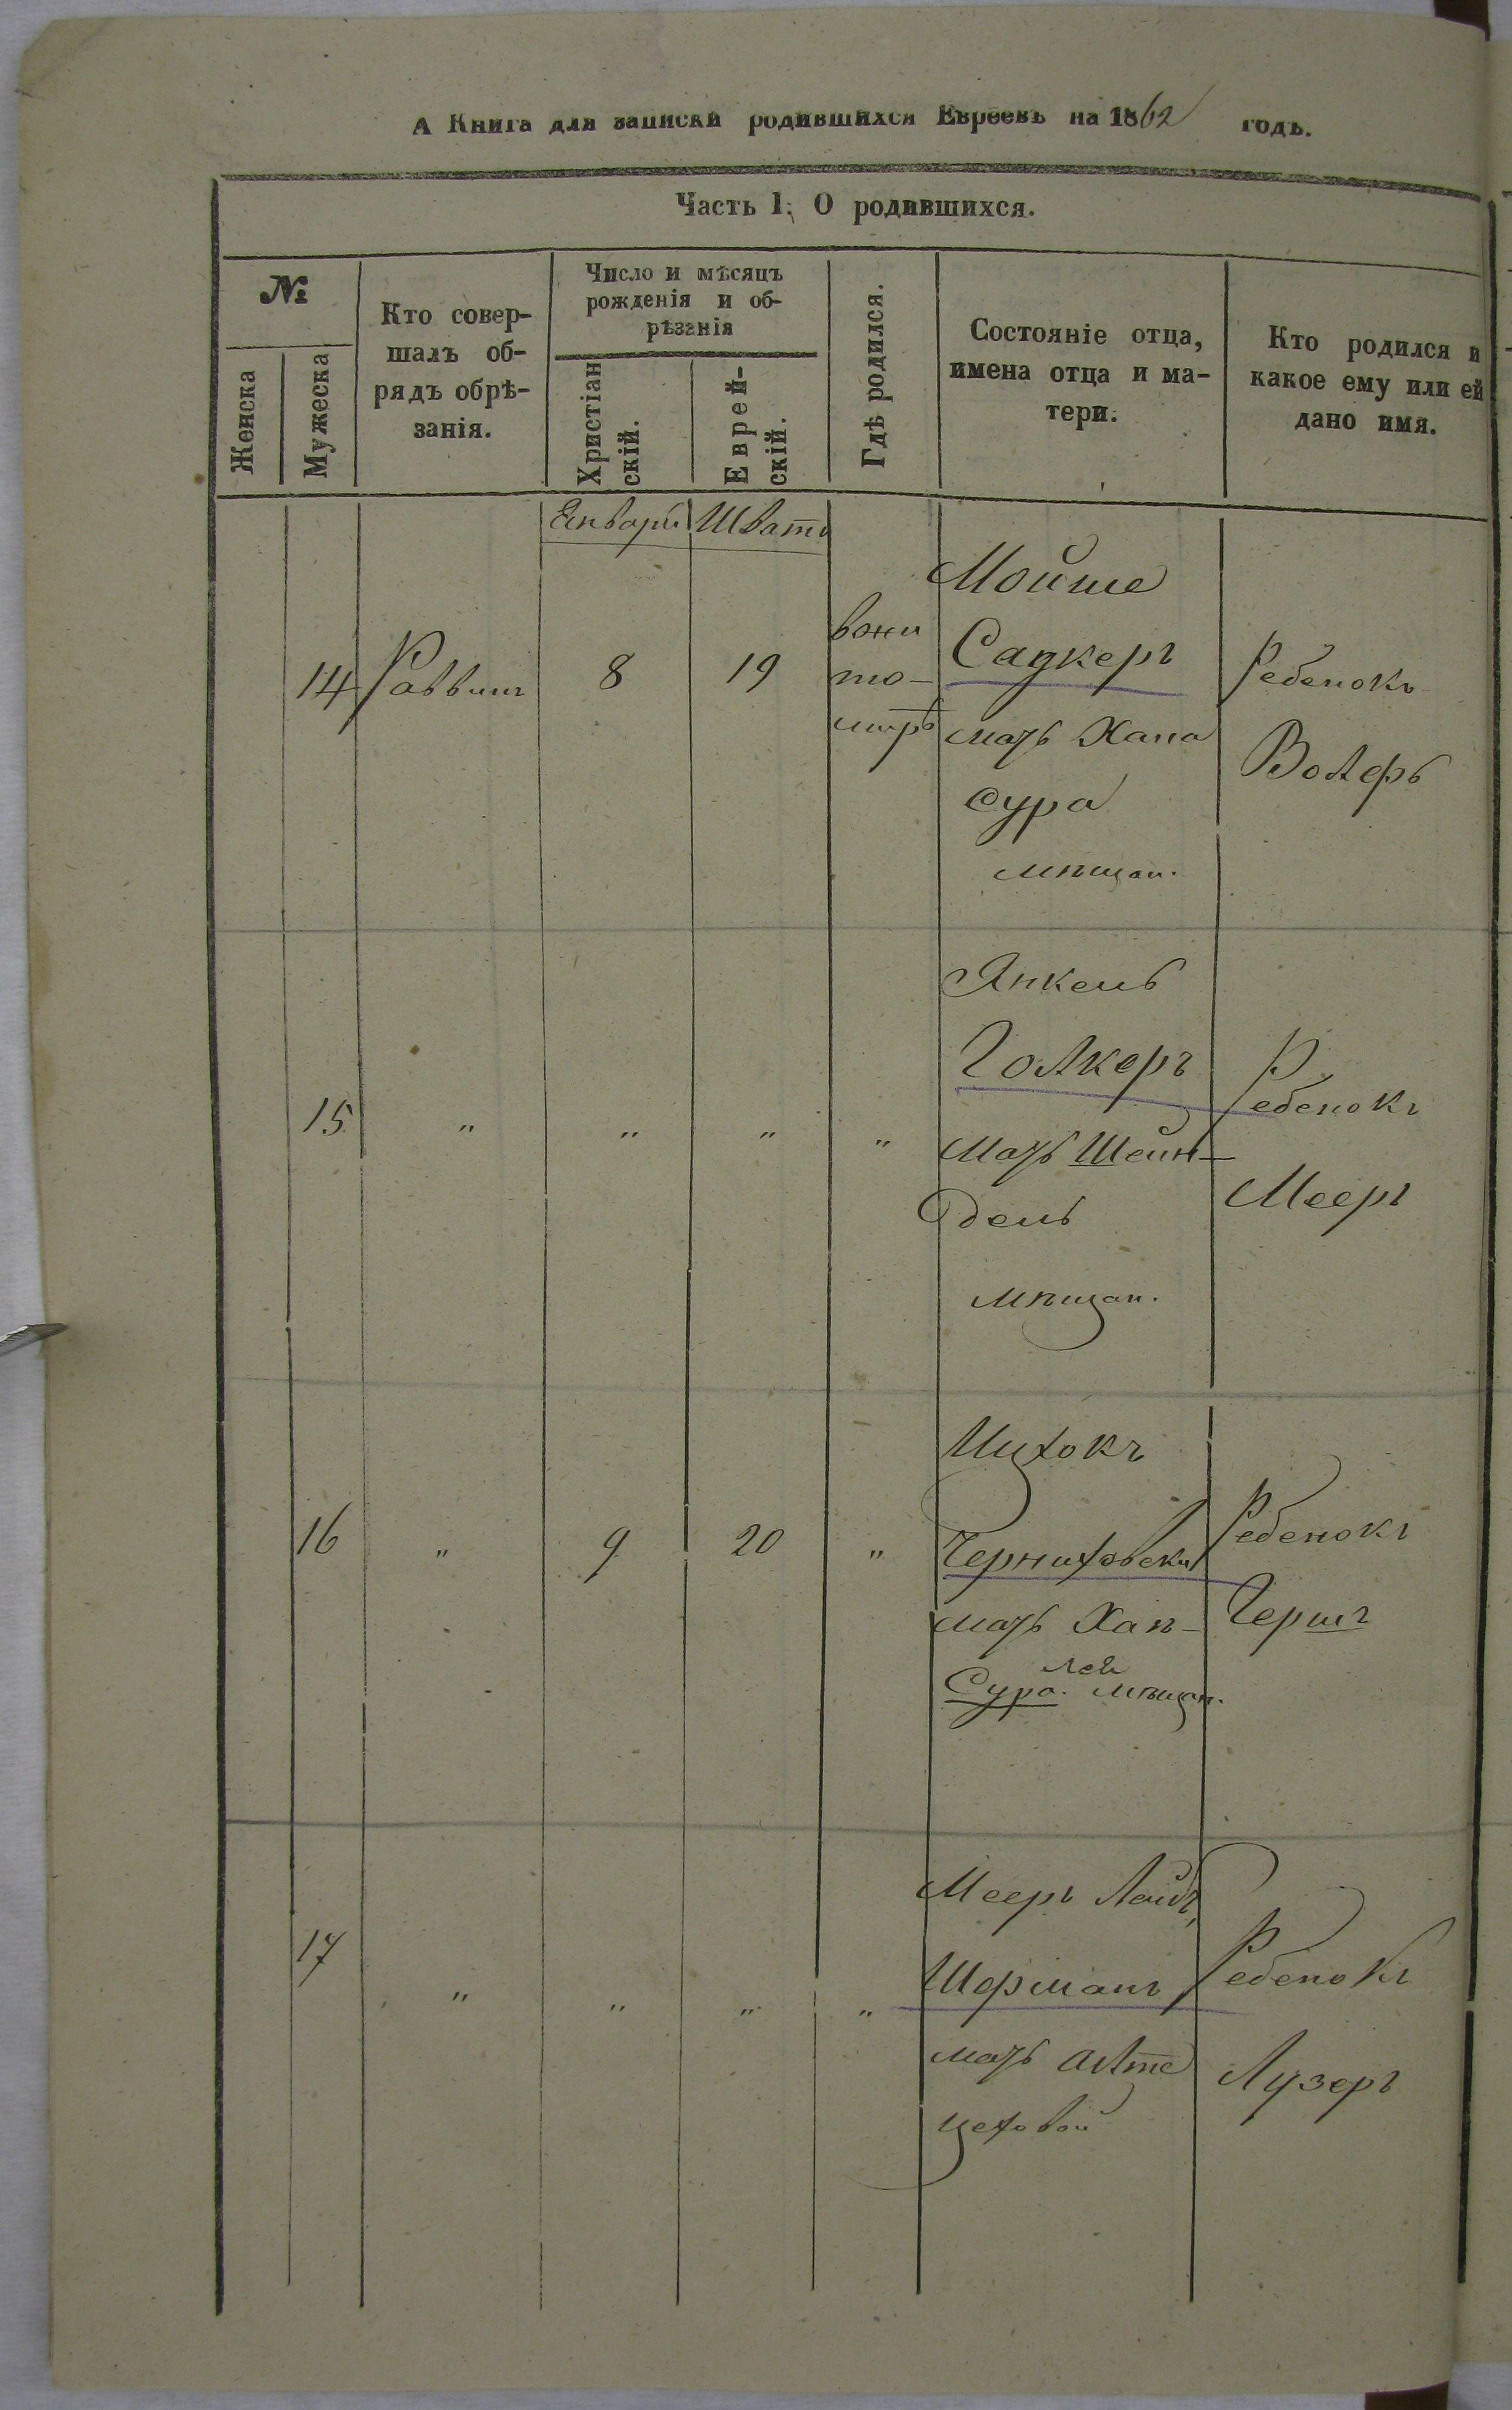 А Книга для записки родившихся Евреевъ на 1862 годъ.
Часть 1. О родившихся.
№
Женска
Мужеска
Кто совер-
шалъ об-
рядъ обрѣ-
занія.
Число и мѣсяцъ
рожденія и об-
рѣзанія
Христіан
скій.
Еврей-
скій.
Гдѣ родился.
Состояніе отца,
имена отца и ма-
тери.
Кто родился и
какое ему или ей
дано имя.
Января Шватъ
14 Раввинъ 8 19
Мойше
мать Хана
Сура
мѣщан.
Ребенокъ
15 " " " "
Янкель
мать Шейн-
дель
мѣщан.
Ребенокъ
Мееръ
16 " 9 20 "
Ицхокъ
Черняховски
мать Хан-
Лея
Сура. мѣщан.
Ребенокъ
Гершъ
17 " " " "
Мееръ Лейбъ
мать Алте
цеховой
Ребенокъ
Лузеръ